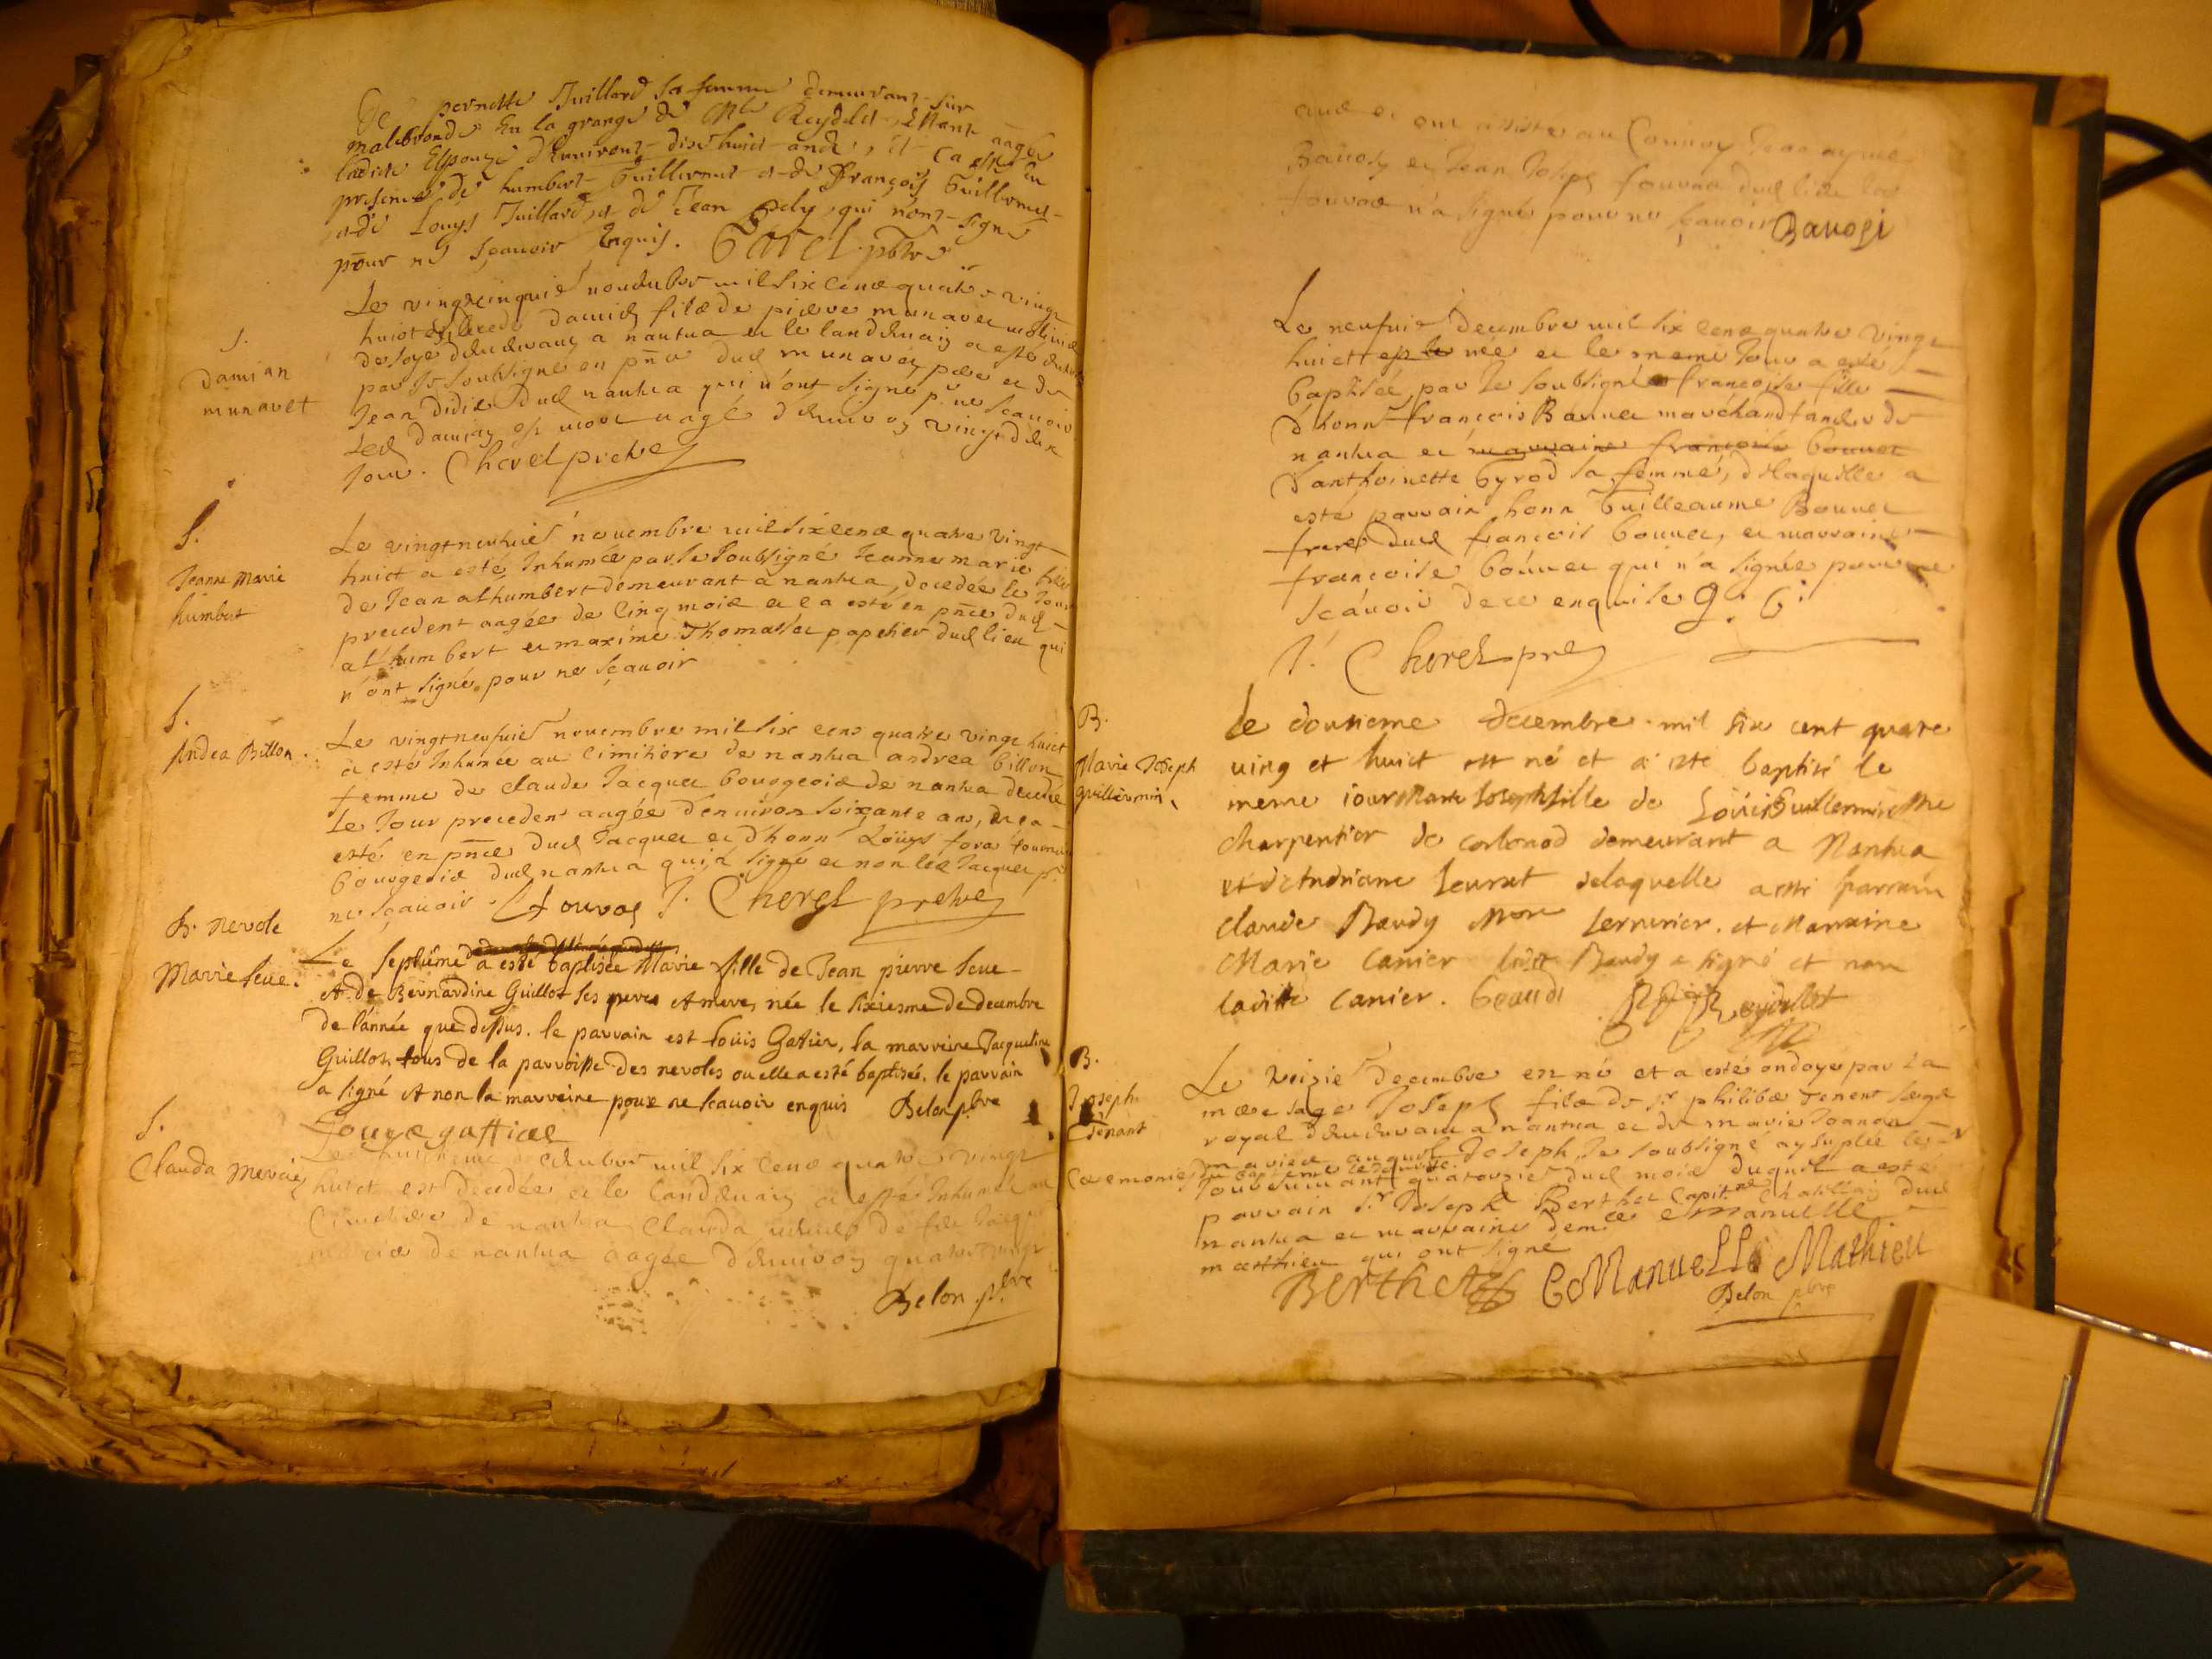 De pernette Juillard sa femme demeurant sur
malebronde En la grange de Mr Reydelet, Estant aagée
ladite Espouze d'Environt dixhuict ans, Et ca esté En
presence de humbert Guillermet et de François Guillermet
et de Louys Juillard, et de Jean pely, qui n'ont signé
pour ne sçavoir Enquis. Garel pbtre
S.
Damian
munavet
Le vingtcinquie novembre mil six cens quatre vingt
huict est decedé Damien fils de pierre munavet
demeurant a nantua et le landemain a esté
par Je soubsigné en pnce dud munavet pere et de
Jean didie dud nantua qui n'ont signé p. ne sçavoir
Led Damien est mort aagé d'environ vingt deux
Jour. Cherel pretre
S.
Jeanne Marie
humbert
Le vingtneufuie novembre mil six cens quatre vingt
huict a esté Inhumée par Je soubsigné Jeanne marie fille
de Jean alhumbert demeurant a nantua, decedée le Jour
precedent aagée de cinq mois et ca esté en pnce dud
alhumbert et maxime Thomasset papetier dud lieu qui
n'ont signé pour ne sçavoir
S.
Andrea Billon.
Le vingtneufuie novembre mil six cens quatre vingt huict
a esté Inhumée au cimitiere de nantua andrea billon
femme de claude Jacquet bourgeois de nantua decedée
le Jour precedent aagée d'environ soixante ans, et ca
esté en pnce dud Jacquet et d'honn Louys fora tournier
bourgeois dud nantua qui a signé et non led Jacquet pr
ne sçavoir. J. Cherel pretre
B. nevole
Marie seve.
Le septieme a esté baptisée Marie fille de Jean pierre seve
et de Bernardine Guillot ses peres et meres, née le sixiesme de decembre
de l'année que dessus. le parrain est Louis Gatier, la marreine Jacqueline
Guillot, tous de la parroisse des nevoles ou elle a esté baptisée. le parrain
a signé et non la marreine pour ne scavoir enquis Belon pbre
Louys gattier
S.
Clauda Mercier
Le huictieme decembre mil six cens quatre vingt
huict est decedée et le landemain a esté Inhumée au
Cimetiere de nantua Clauda veuve de feu Jacque
mercier de nantua aagée d'environ quatre vingt
Belon pbre
et ont assisté au Convoy
Bavosy et Jean Joseph fouvra dud lieu led
fouvra n'a signé pour ne sçavoir Bavosi
Le neufuie decembre mil six cens quatre vingt
huict est née et le meme Jour a esté
baptisée par Je soubsigné françoise fille
d'honn françois Bonnet marchand tandeur de
nantua et marraine françoise bonnet
d'anthoinette Gyrod sa femme, de laquelle a
esté parrain honn Guilleaume Bonnet
frere dud françois bonnet, et marraine
françoise bonnet qui n'a signée pour ne
sçavoir de ce enquise G. b.
J. Cherel pre
B.
Marie Joseph
guillermin
Le dousieme decembre mil six cent quatre
ving et huict est né et a esté baptisé le
meme iour Marie Joseph fille de Louis Guillermin Me
charpentier de corbonod demeurant a Nantua
et d'Andriane Leurset delaquelle a esté parrain
claude Baudy Mre serrurier. et Marraine
Marie Canier ledit Baudy a signé et non
laditte Canier. baudi Reydellet
B.
Joseph
Tenant
Le treizie decembre est né et a esté ondoyé par la
mere sage Joseph fils de sr philibe Tenant serge
royal demeurant a nantua et de marie Joanon
mariés auquel Joseph Je soubsigné ay suplée les
Ceremonies du baptême le
Jour suivant quatorzie dud mois duquel a esté
parrain sr Joseph Berthet Capitne Chatellain dud
nantua et marraine demlle Emanuelle
matthieu qui ont signé
Berthet EManuelle Mathieu
Belon pbre